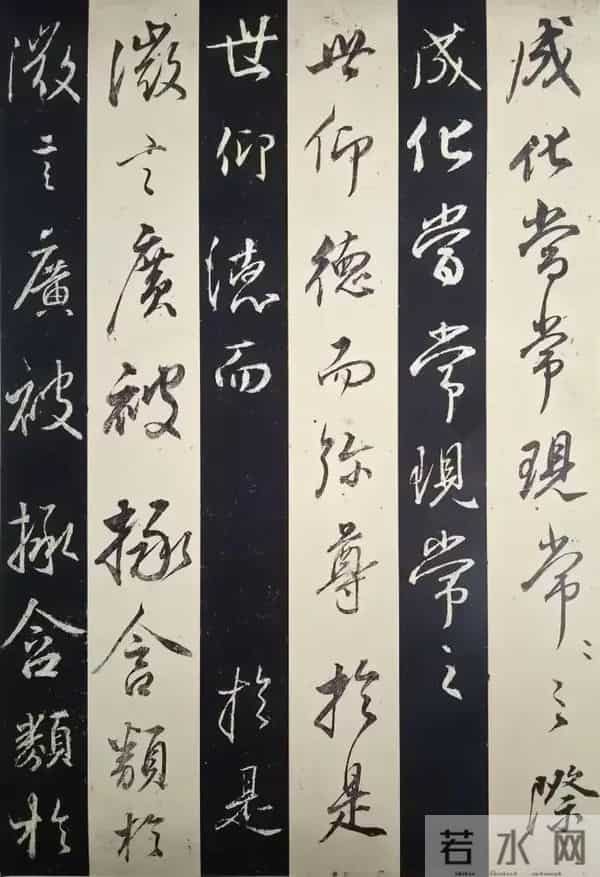 成化當常現常〻之際
成化當常現常之
世仰德而弥尊於是
世仰德而 於是
微言廣被拯含類於
微言廣被拯含類於
若水网